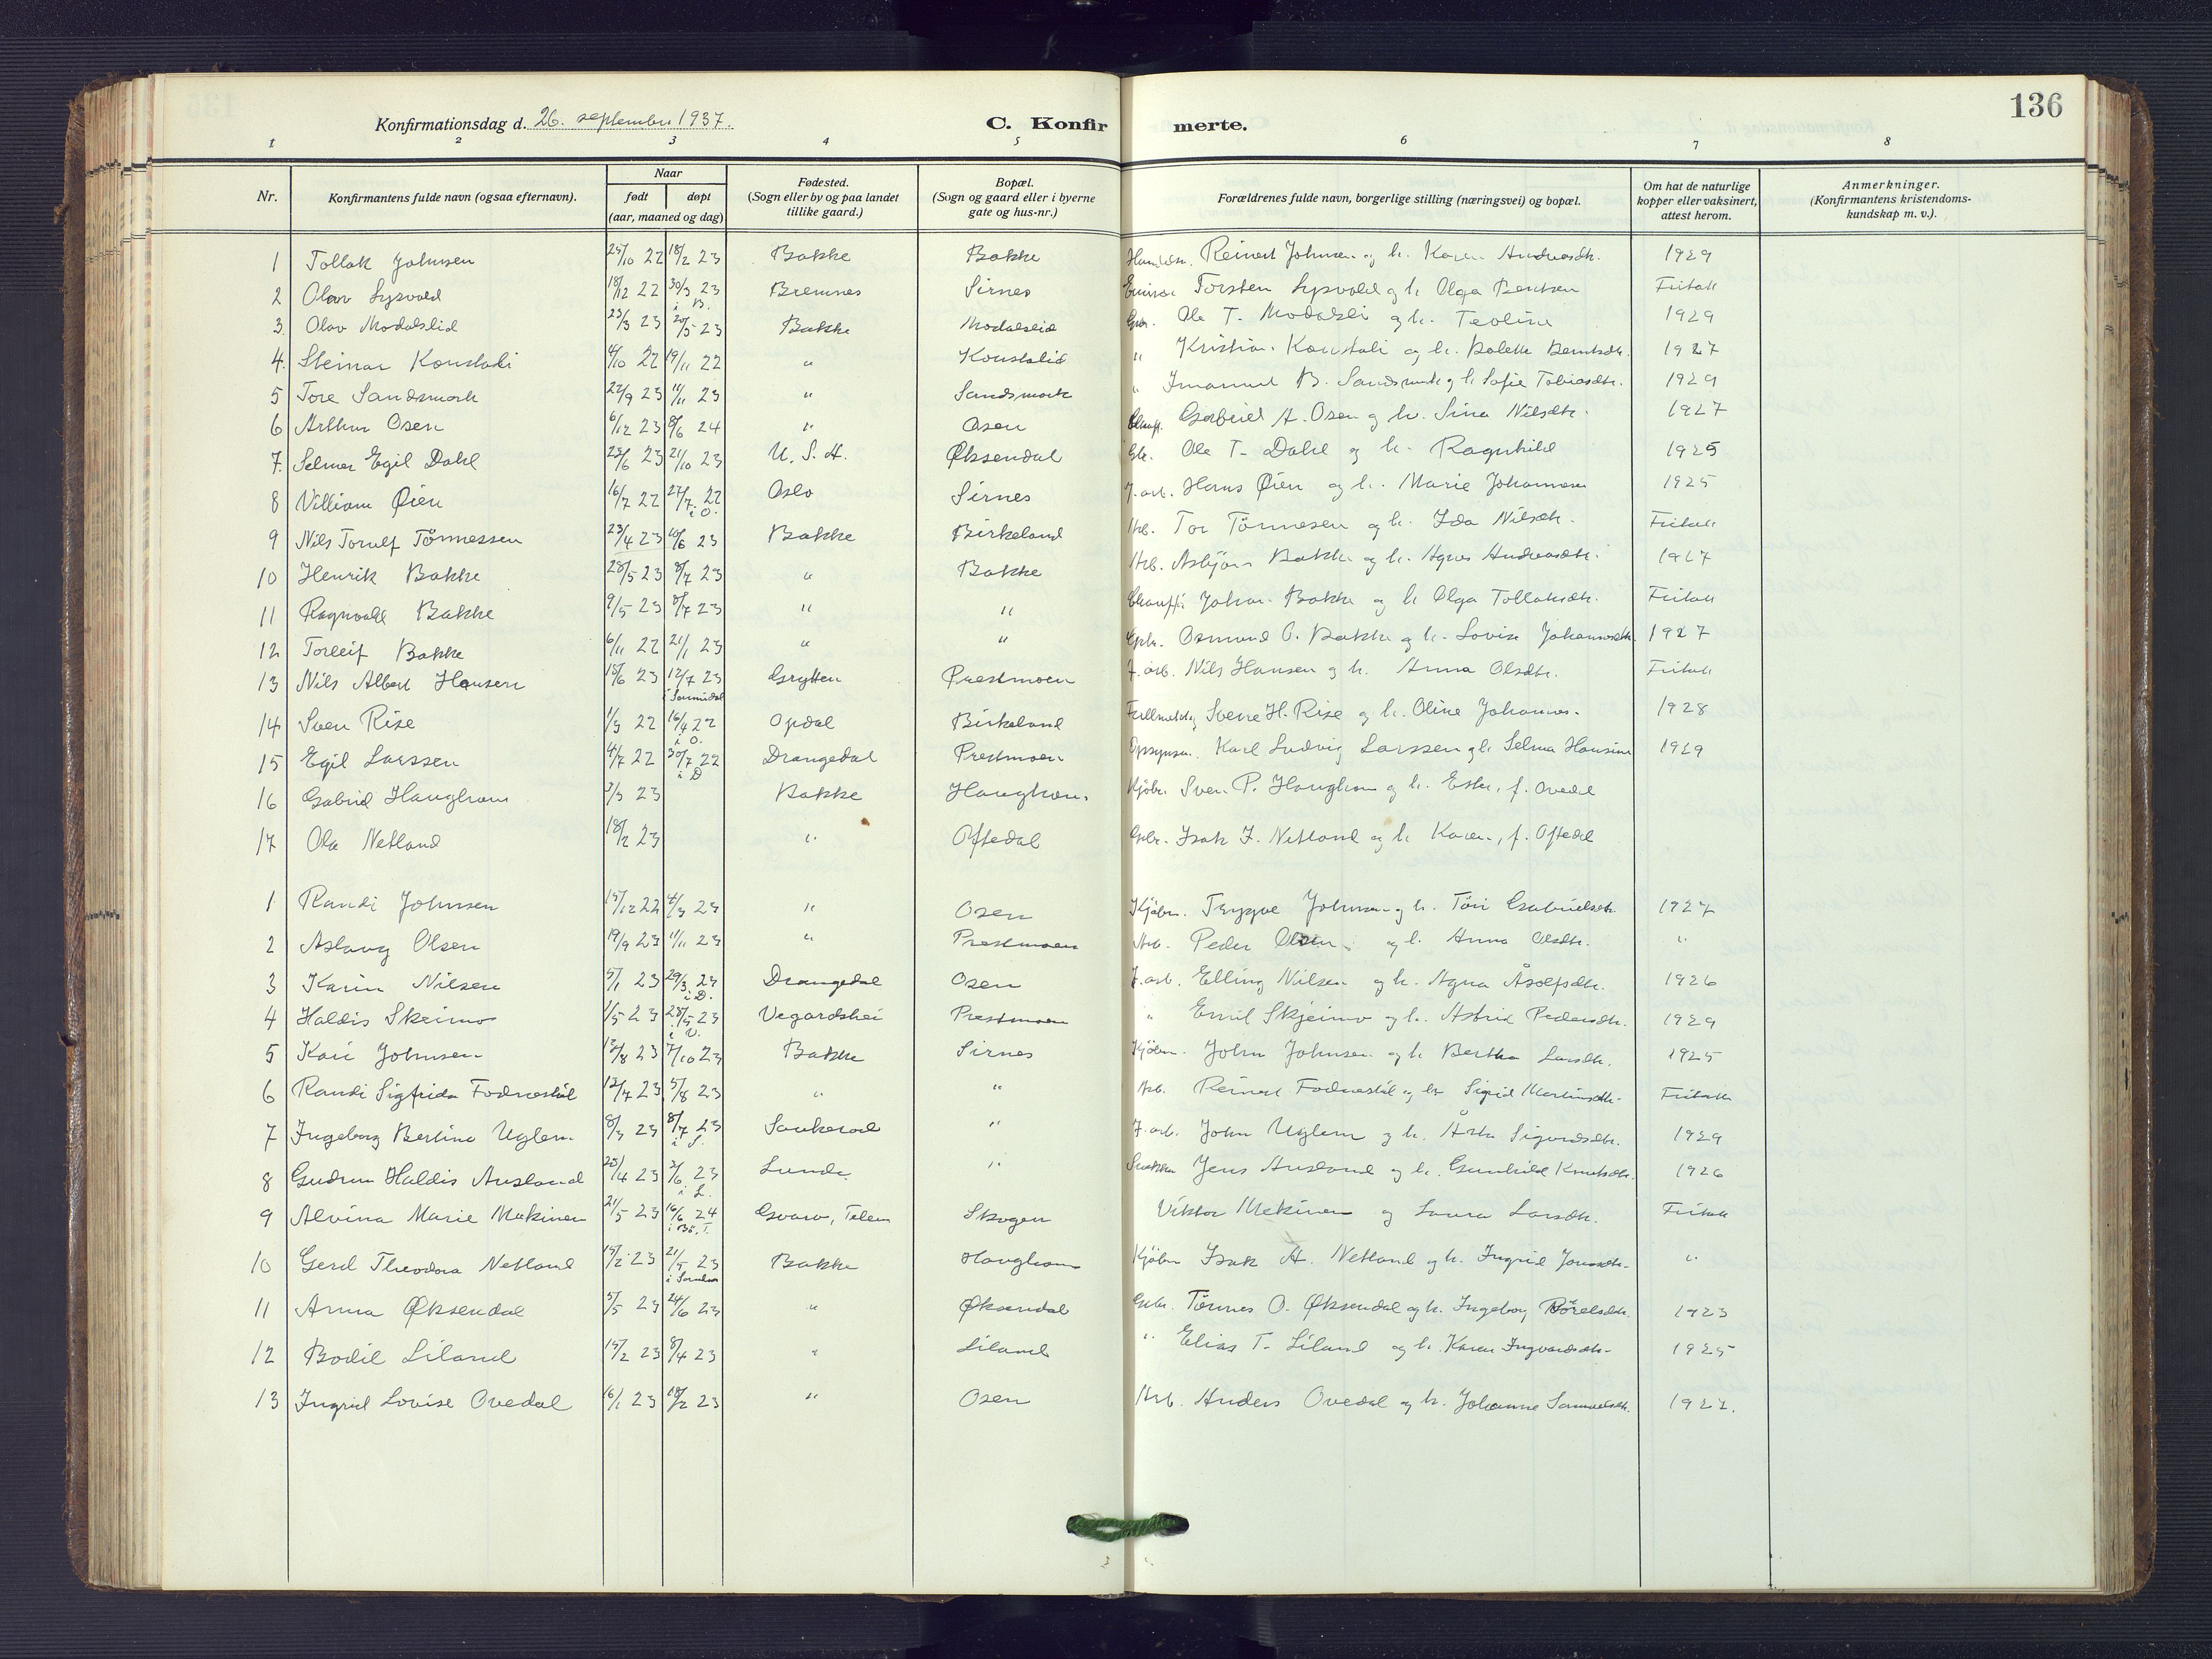 136
Konfirmationsdag d. 26. september 1937.
C. Konfir merte.
1 2 3 4 5 6 7 8
Nr. Konfirmantens fulde navn (ogsaa efternavn). Naar født døpt (aar, maaned og dag) Fødested. (Sogn eller by og paa landet tillike gaard.) Bopæl. (Sogn og gaard eller i byerne gate og hus-nr.) Forældrenes fulde navn, borgerlige stilling (næringsvei) og bopæl. Om hat de naturlige kopper eller vaksinert, attest herom. Anmerkninger. (Konfirmantens kristendomskundskap m. v.).
1 Tollak Johnsen 25/10 22 18/2 23 Bakke Bakke Reinert Johnsen og h. Karen Andreasdtr. 1929
2 Olav Lysvold 18/12 22 30/3 23 i B. Bremnes Sirnes Torsten Lysvold og h. Olga Bentsen Fritatt
3. Olav Modalslid 23/3 23 20/5 23 Bakke Modalslid Gbr. Ole T. Modalsli og h. Teoline 1929
4. Steinar Konstali 4/10 22 19/11 22 " Konstalid " Kristian Konstali og h. Bolette Berntsdtr. 1927
5 Tore Sandsmark 22/9 23 11/11 23 " Sandsmark " Imanuel B. Sandsmark og h. Sofie Tobiasdtr. 1929
6 Arthur Osen 6/12 23 8/6 24 " Osen Chauff. Gabriel A. Osen og h. Sina Nilsdtr. 1927
7. Selmer Egil Dahl 23/6 23 21/10 23 U. S. A. Øksendal Gbr. Ole T. Dahl og h. Ragnhild 1925
8 Villiam Øien 16/7 22 27/7 22 i O. Oslo Sirnes J. arb. Hans Øien og h. Marie Johannesen 1925
9 Nils Torulf Tönnessen 23/4 23 10/6 23 Bakke Birkeland Arb. Tor Tönnesen og h. Ida Nilsdtr. Fritatt
10 Henrik Bakke 28/5 23 8/7 23 " Bakke Arb. Asbjörn Bakke og h. Agnes Andreasdtr. 1927
11 Ragnvald Bakke 9/5 23 8/7 23 " " Chauff. Johan Bakke og h. Olga Tollaksdtr. Fritatt
12 Torleif Bakke 6/11 22 21/1 23 " " Gbr. Osmund O. Bakke og h. Lovise Johannesdtr. 1927
13 Nils Albert Hansen 18/6 23 12/7 23 Grytten Prestmoen J. arb. Nils Hansen og h. Anna Olsdtr. Fritatt
14 Sven Rise 1/3 22 16/4 22 i O. Opdal Birkeland Sverre H. Rise og h. Oline Johannes. 1928
15 Egil Larssen 4/7 22 30/7 22 i D Drangedal Prestmoen Opsynsm. Karl Ludvig Larssen og h. Selma Hansine 1929
16 Gabriel Haughom 3/3 23 Bakke Haughom Kjöbm. Sven P. Haughom og h. Ester, f. Ovedal
17 Ola Netland 18/2 23 " Oftedal Gbr. Isak J. Netland og h. Karen, f. Oftedal
1 Randi Johnsen 15/12 22 4/3 23 " Osen Kjöbm. Trygve Johnsen og h. Töri Gabrielsdtr. 1927
2 Aslaug Olsen 19/9 23 11/11 23 " Prestmoen Arb. Peder Olsen og h. Anna Olsdtr. "
3 Karin Nilsen 5/1 23 29/3 23 i D. Drangedal Osen J. arb. Elling Nilsen og h. Agna Åsolfsdtr. 1926
4 Haldis Skeimo 1/5 23 28/5 23 i V. Vegardshei Prestmoen " Emil Skjeimo og h. Astrid Pedersdtr. 1929
5 Kari Johnsen 13/8 23 7/10 23 Bakke Sirnes Kjöbm. John Johnsen og h. Bertha Larsdtr. 1925
6 Randi Sigfrida Fodnestöl 12/7 23 5/8 23 " " Arb. Reinert Fodnestöl og h. Sigrid Martinsdtr. Fritatt
7 Ingeborg Bertine Uglem 8/3 23 8/7 23 i S. Saukerad " J. arb. John Uglem og h. Åsta Sigurdsdtr. 1929
8 Gudrun Haldis Ausland 25/4 23 3/6 23 i L. Lunde " Jens Ausland og h. Gunhild Knutsdtr. 1926
9 Alvina Marie Mekinen 21/5 23 16/6 24 i Bö. T. Gvarv, Telem Skogen Viktor Mekinen og Laura Larsdtr. Fritatt
10 Gerd Theodora Netland 15/2 23 21/5 23 Bakke Haughom Kjöbm Isak A. Netland og h. Ingrid Jonasdtr. "
11 Anna Øksendal 5/5 23 24/6 23 " Øksendal Gbr. Tönnes O. Øksendal og h. Ingeborg Börelsdtr. 1923
12 Bodil Liland 15/2 23 8/4 23 " Liland " Elias T. Liland og h. Karen Ingvardsdtr. 1925
13 Ingrid Lovise Ovedal 16/1 23 18/2 23 " Osen Arb. Anders Ovedal og h. Johanne Samuelsdtr. 1927.